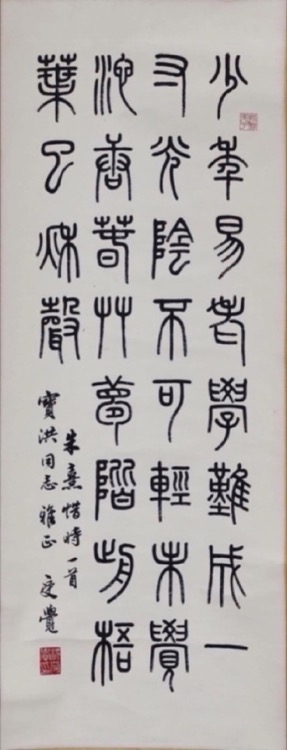 少年易老學難成一
寸光陰不可輕未覺
池唐春艸夢階前梧
葉已秋聲
朱熹惜時一首
寶洪同志雅正 覺